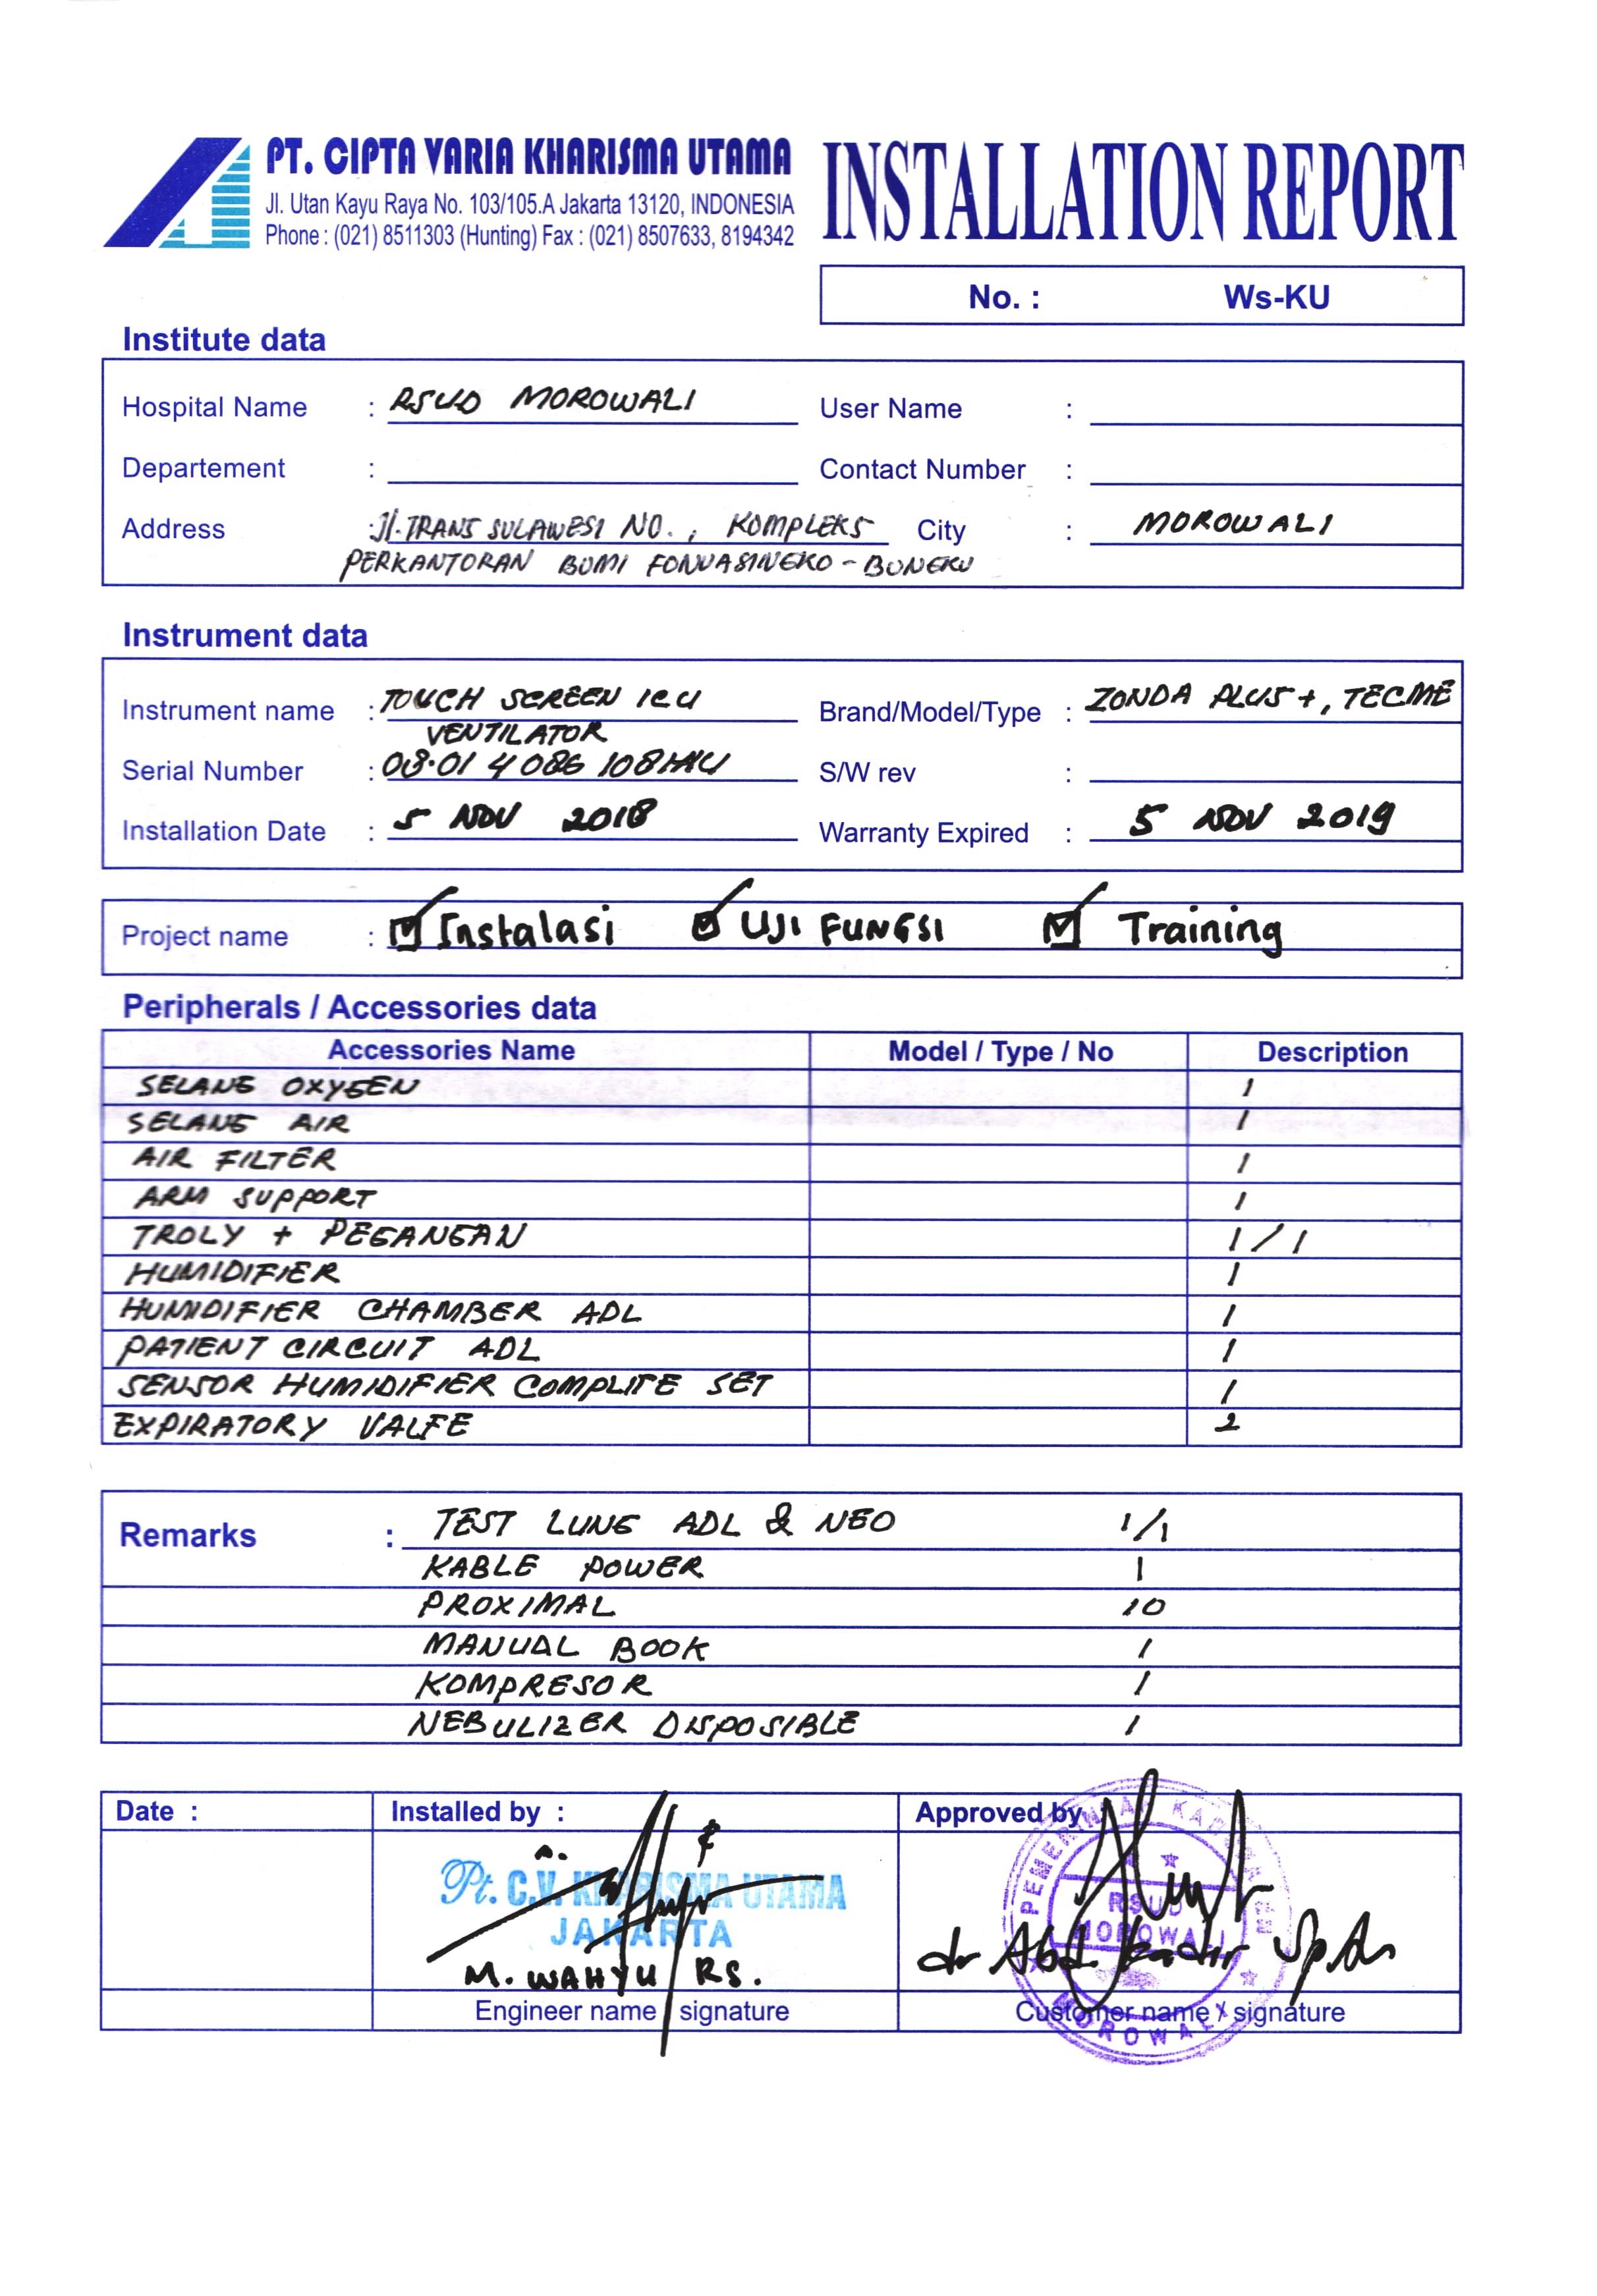 PT. CIPTA VARIA KHARISMA UTAMA
Jl. Utan Kayu Raya No. 103/105.A Jakarta 13120, INDONESIA
Phone : (021) 8511303 (Hunting) Fax : (021) 8507633, 8194342
INSTALLATION REPORT
No. : Ws-KU
Institute data
Hospital Name : RSUD MOROWALI User Name :
Departement : Contact Number :
Address : Jl. TRANS SULAWESI NO. , KOMPLEKS City : MOROWALI
PERKANTORAN BUMI FONUASINGKO - BUNGKU
Instrument data
Instrument name : TOUCH SCREEN ICU Brand/Model/Type : ZONDA PLUS +, TECME
VENTILATOR
Serial Number : 03.01 4 086 108 S/W rev :
Installation Date : 5 NOV 2018 Warranty Expired : 5 NOV 2019
Project name : Instalasi UJI FUNGSI Training
Peripherals / Accessories data
Accessories Name Model / Type / No Description
SELANG OXYGEN 1
SELANG AIR 1
AIR FILTER 1
ARM SUPPORT 1
TROLY + PEGANGAN 1 / 1
HUMIDIFIER 1
HUMIDIFIER CHAMBER ADL 1
PATIENT CIRCUIT ADL 1
SENSOR HUMIDIFIER COMPLITE SET 1
EXPIRATORY VALFE 2
Remarks : TEST LUNG ADL & NEO 1/1
KABLE POWER 1
PROXIMAL 10
MANUAL BOOK 1
KOMPRESOR 1
NEBULIZER DISPOSIBLE 1
Date : Installed by : Approved by
Pt. C.V. KHARISMA UTAMA
JAKARTA
M. WAHYU RS.
PEMERINTAH KABUPATEN
RSUD
MOROWALI
MOROWALI
dr Abd kadir Sp.An
Engineer name / signature Customer name / signature